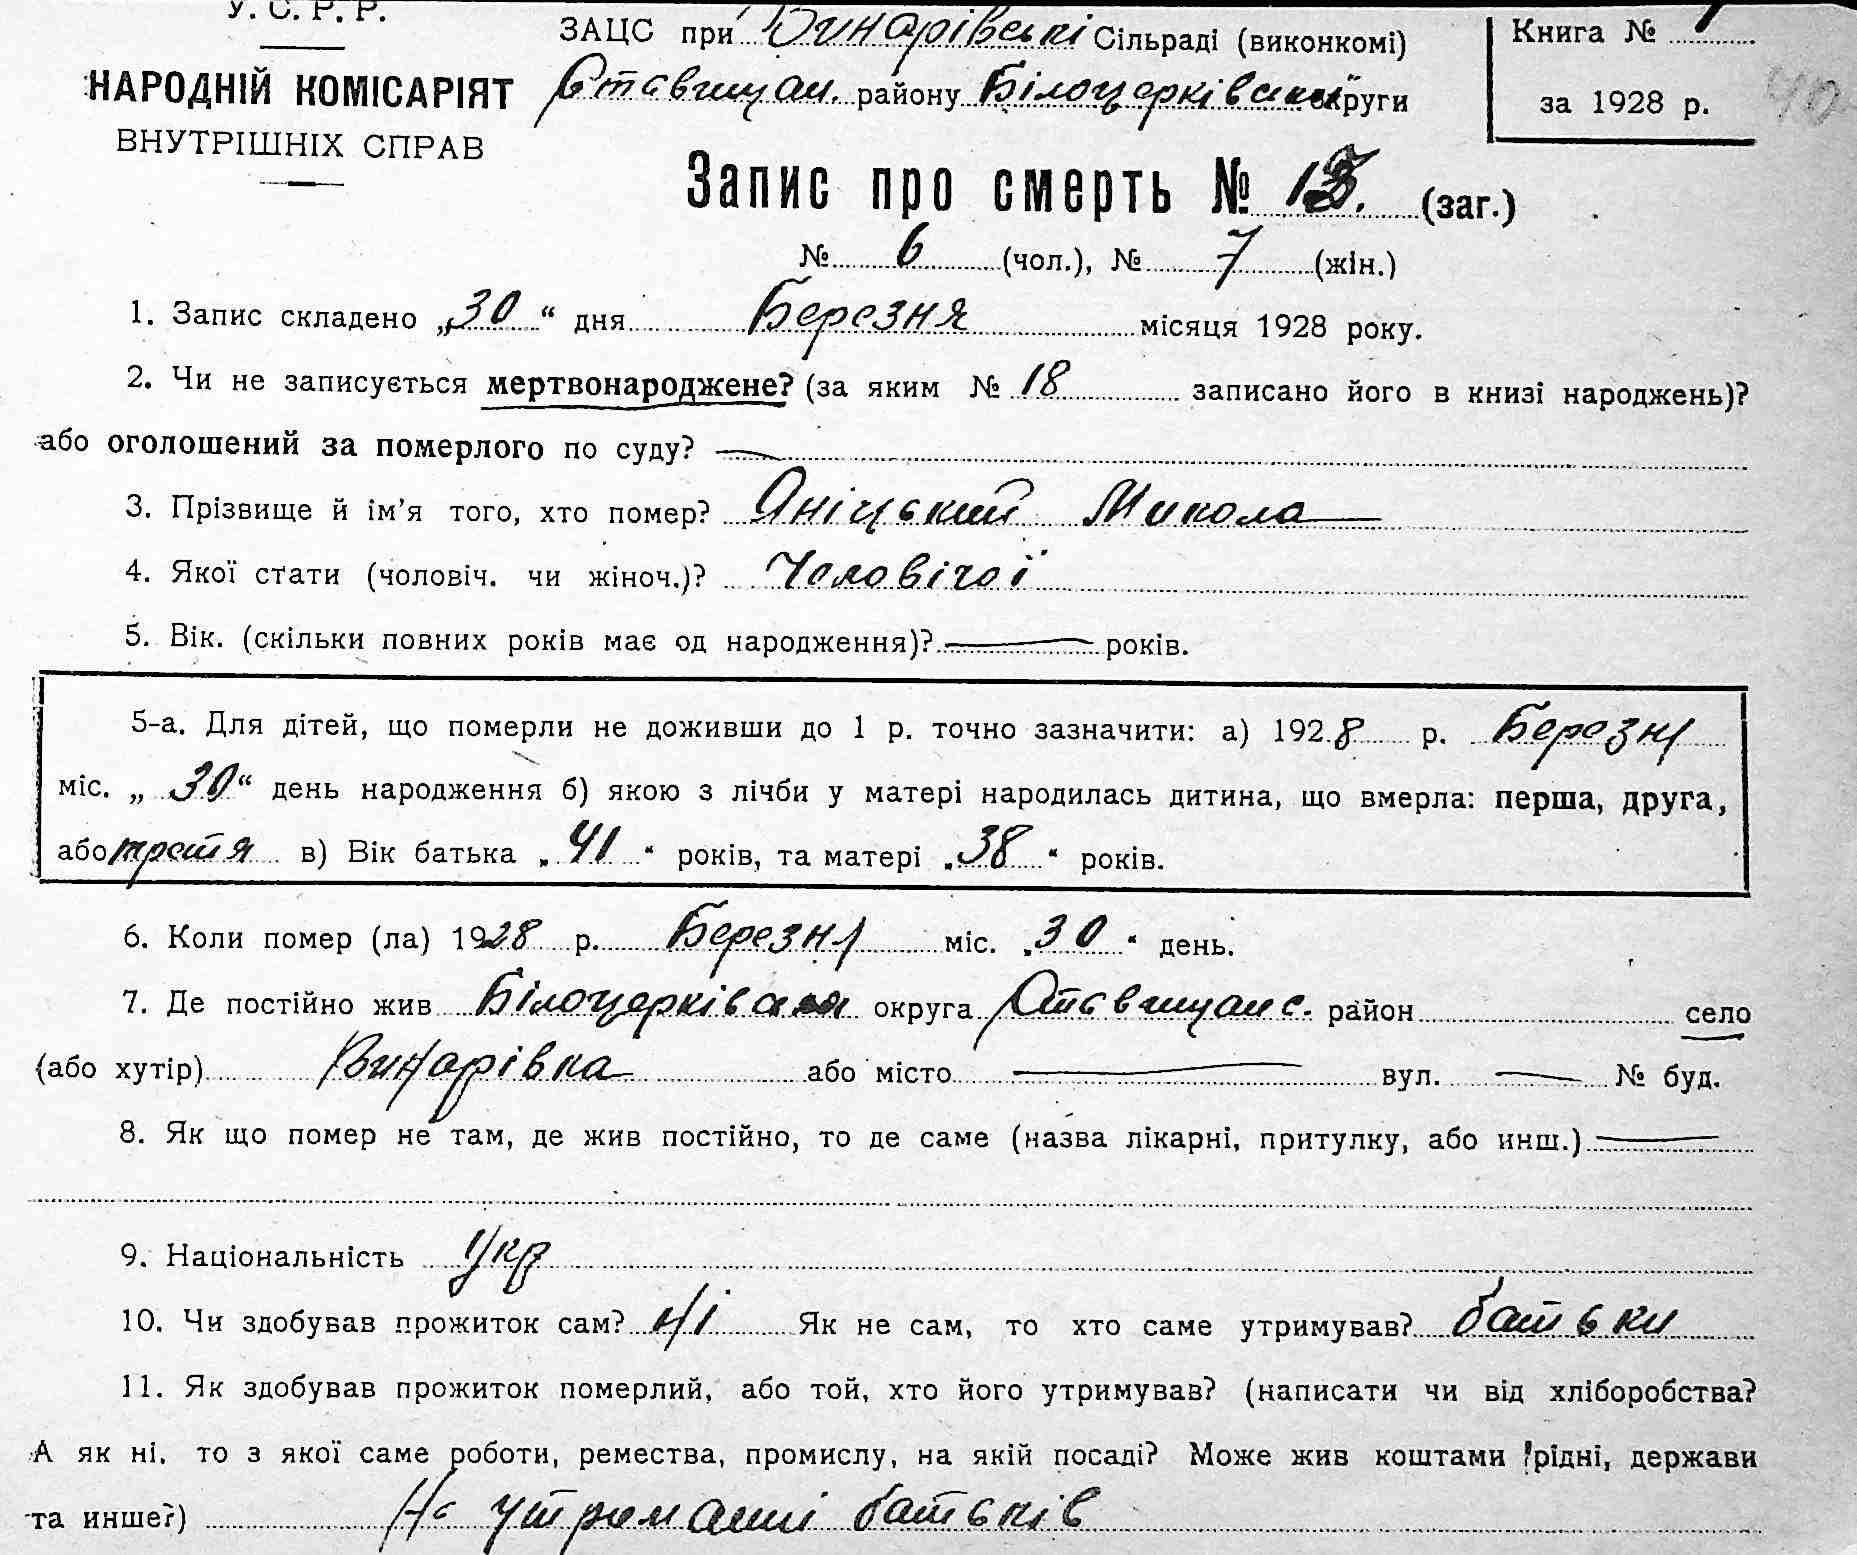 У. С. Р. Р.
НАРОДНІЙ КОМІСАРІЯТ
ВНУТРІШНІХ СПРАВ
ЗАЦС при Винарівські Сільраді (виконкомі)
Ставищан. району Білоцерківської округи
Книга № 1
за 1928 р.
40
Запис про смерть № 13. (заг.)
№ 6 (чол.), № 7 (жін.)
1. Запис складено „30“ дня Березня місяця 1928 року.
2. Чи не записується мертвонароджене? (за яким № 18 записано його в книзі народжень)?
або оголошений за померлого по суду? —
3. Прізвище й ім'я того, хто помер? Яніцький Микола
4. Якої стати (чоловіч. чи жіноч.)? Чоловічої
5. Вік. (скільки повних років має од народження)? — років.
5-а. Для дітей, що померли не доживши до 1 р. точно зазначити: а) 1928 р. Березня
міс. „30“ день народження б) якою з лічби у матері народилась дитина, що вмерла: перша, друга,
або третя в) Вік батька „41“ років, та матері „38“ років.
6. Коли помер (ла) 1928 р. Березня міс. „30“ день.
7. Де постійно жив Білоцерківська округа Ставищанс. район село
(або хутір) Винарівка або місто — вул. — № буд.
8. Як що помер не там, де жив постійно, то де саме (назва лікарні, притулку, або инш.) —
9. Національність Укр
10. Чи здобував прожиток сам? Ні Як не сам, то хто саме утримував? батьки
11. Як здобував прожиток померлий, або той, хто його утримував? (написати чи від хліборобства?
А як ні, то з якої саме роботи, ремества, промислу, на якій посаді? Може жив коштами рідні, держави
та инше?) На утриманні батьків